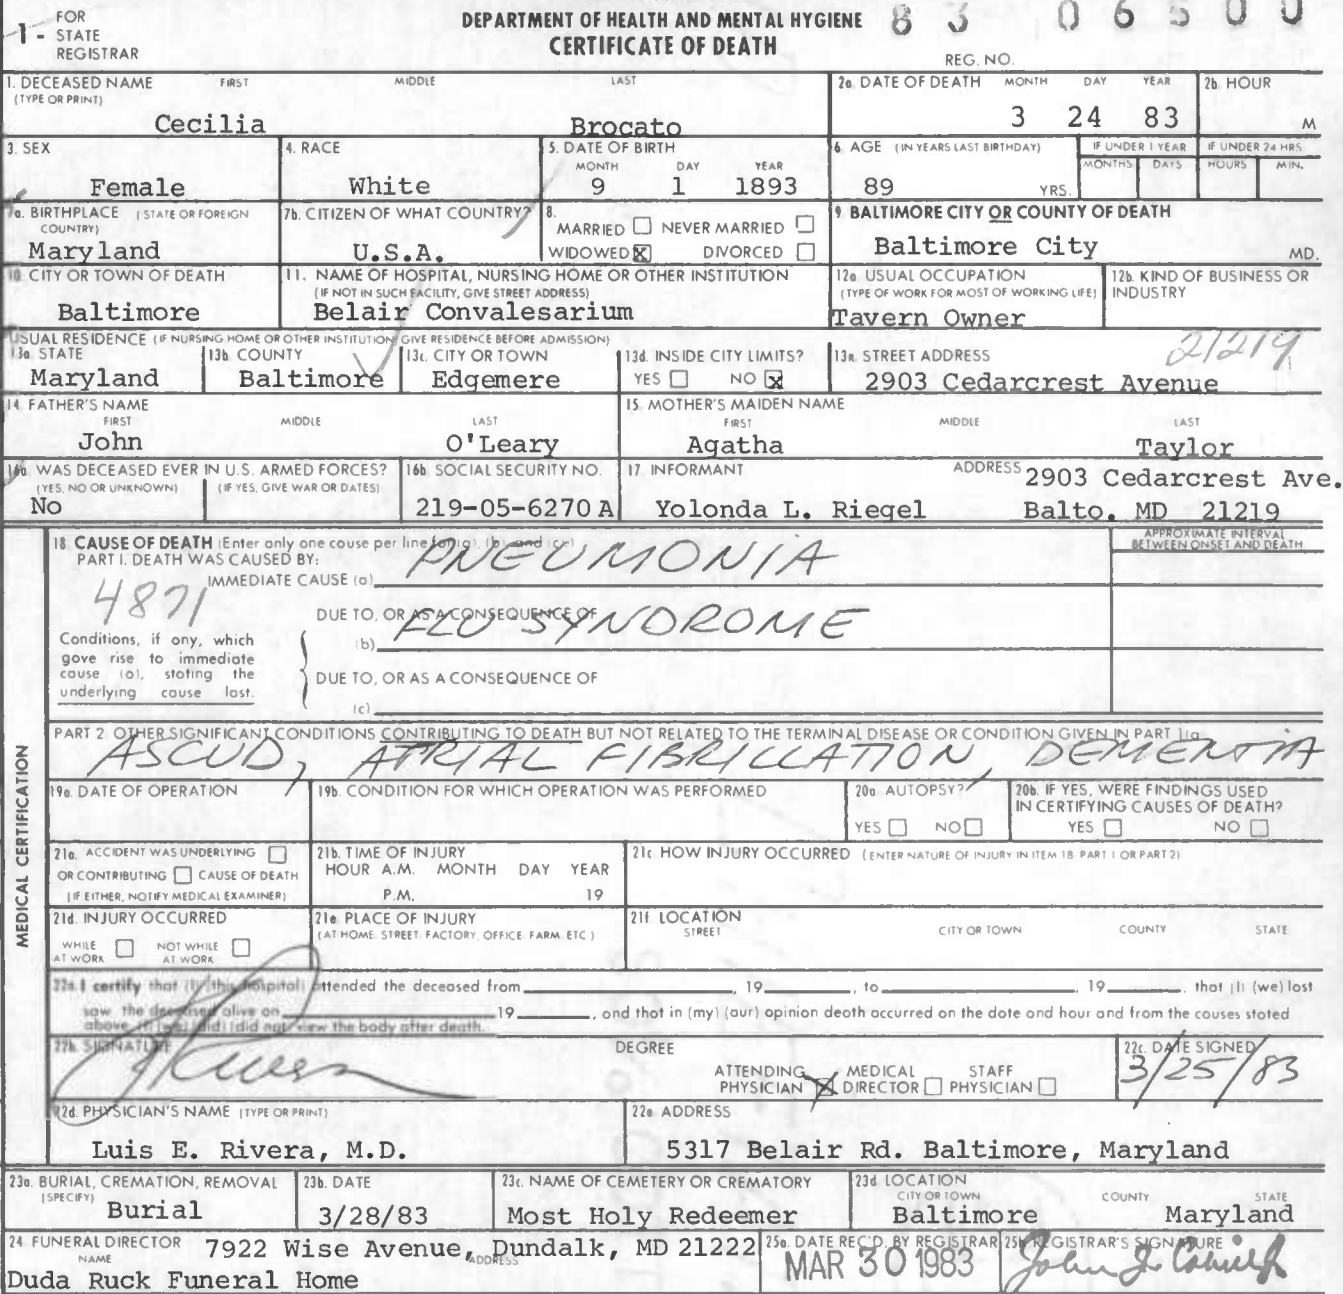 1 - FOR
STATE
REGISTRAR
DEPARTMENT OF HEALTH AND MENTAL HYGIENE
CERTIFICATE OF DEATH
83 06500
REG. NO.
1. DECEASED NAME FIRST MIDDLE LAST
(TYPE OR PRINT)
Cecilia Brocato
2a. DATE OF DEATH MONTH DAY YEAR
3 24 83
2b. HOUR
M
3. SEX
Female
4. RACE
White
5. DATE OF BIRTH
MONTH DAY YEAR
9 1 1893
6. AGE (IN YEARS LAST BIRTHDAY)
89 YRS.
IF UNDER 1 YEAR
MONTHS DAYS
IF UNDER 24 HRS
HOURS MIN.
7a. BIRTHPLACE (STATE OR FOREIGN
COUNTRY)
Maryland
7b. CITIZEN OF WHAT COUNTRY?
U.S.A.
8.
MARRIED NEVER MARRIED
WIDOWED X DIVORCED
9. BALTIMORE CITY OR COUNTY OF DEATH
Baltimore City MD.
10. CITY OR TOWN OF DEATH
Baltimore
11. NAME OF HOSPITAL, NURSING HOME OR OTHER INSTITUTION
(IF NOT IN SUCH FACILITY, GIVE STREET ADDRESS)
Belair Convalesarium
12a. USUAL OCCUPATION
(TYPE OF WORK FOR MOST OF WORKING LIFE)
Tavern Owner
12b. KIND OF BUSINESS OR
INDUSTRY
USUAL RESIDENCE (IF NURSING HOME OR OTHER INSTITUTION, GIVE RESIDENCE BEFORE ADMISSION)
13a. STATE
Maryland
13b. COUNTY
Baltimore
13c. CITY OR TOWN
Edgemere
13d. INSIDE CITY LIMITS?
YES NO X
13e. STREET ADDRESS
21219
2903 Cedarcrest Avenue
14. FATHER'S NAME
FIRST MIDDLE LAST
John O'Leary
15. MOTHER'S MAIDEN NAME
FIRST MIDDLE LAST
Agatha Taylor
16a. WAS DECEASED EVER IN U.S. ARMED FORCES?
(YES, NO OR UNKNOWN) (IF YES, GIVE WAR OR DATES)
No
16b. SOCIAL SECURITY NO.
219-05-6270 A
17. INFORMANT
Yolonda L. Riegel
ADDRESS 2903 Cedarcrest Ave.
Balto. MD 21219
18. CAUSE OF DEATH (Enter only one cause per line for (a), (b) and (c))
PART I. DEATH WAS CAUSED BY:
IMMEDIATE CAUSE (a) PNEUMONIA
APPROXIMATE INTERVAL
BETWEEN ONSET AND DEATH
4871
DUE TO, OR AS A CONSEQUENCE OF
(b) FLU SYNDROME
Conditions, if any, which
gave rise to immediate
cause (a), stating the
underlying cause last.
DUE TO, OR AS A CONSEQUENCE OF
(c)
PART 2. OTHER SIGNIFICANT CONDITIONS CONTRIBUTING TO DEATH BUT NOT RELATED TO THE TERMINAL DISEASE OR CONDITION GIVEN IN PART 1(a)
ASCUD, ATRIAL FIBRILLATION, DEMENTIA
19a. DATE OF OPERATION
19b. CONDITION FOR WHICH OPERATION WAS PERFORMED
20a. AUTOPSY?
YES NO
20b. IF YES, WERE FINDINGS USED
IN CERTIFYING CAUSES OF DEATH?
YES NO
MEDICAL CERTIFICATION
21a. ACCIDENT WAS UNDERLYING
OR CONTRIBUTING CAUSE OF DEATH
(IF EITHER, NOTIFY MEDICAL EXAMINER)
21b. TIME OF INJURY
HOUR A.M. MONTH DAY YEAR
P.M. 19
21c. HOW INJURY OCCURRED (ENTER NATURE OF INJURY IN ITEM 18. PART 1 OR PART 2)
21d. INJURY OCCURRED
WHILE AT WORK NOT WHILE AT WORK
21e. PLACE OF INJURY
(AT HOME, STREET, FACTORY, OFFICE, FARM, ETC.)
21f. LOCATION
STREET CITY OR TOWN COUNTY STATE
22a. I certify that (I) (this hospital) attended the deceased from 19 , to 19 , that (I) (we) last
saw the deceased alive on 19 , and that in (my) (our) opinion death occurred on the date and hour and from the causes stated
above. (I) (we) (did) (did not) view the body after death.
22b. SIGNATURE
Rivera
DEGREE
ATTENDING PHYSICIAN X MEDICAL DIRECTOR STAFF PHYSICIAN
22c. DATE SIGNED
3/25/83
22d. PHYSICIAN'S NAME (TYPE OR PRINT)
Luis E. Rivera, M.D.
22e. ADDRESS
5317 Belair Rd. Baltimore, Maryland
23a. BURIAL, CREMATION, REMOVAL
(SPECIFY)
Burial
23b. DATE
3/28/83
23c. NAME OF CEMETERY OR CREMATORY
Most Holy Redeemer
23d. LOCATION
CITY OR TOWN COUNTY STATE
Baltimore Maryland
24. FUNERAL DIRECTOR
NAME ADDRESS
7922 Wise Avenue, Dundalk, MD 21222
Duda Ruck Funeral Home
25a. DATE REC'D. BY REGISTRAR
MAR 30 1983
25b. REGISTRAR'S SIGNATURE
John J.